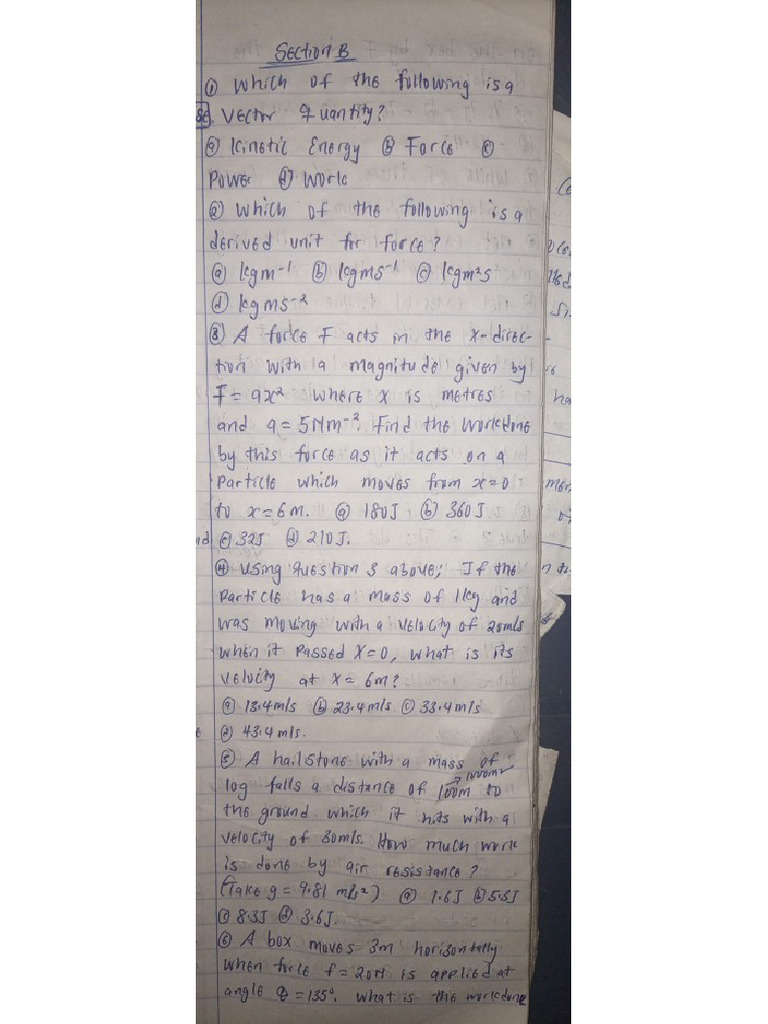 Section B
① Which of the following is a
Vector Quantity?
ⓐ Kinetic Energy ⓑ Force ⓒ
Power ⓓ Work
② Which of the following is a
derived unit for force?
ⓐ kgm⁻¹ ⓑ kgms⁻¹ ⓒ kgm²s
ⓓ kgms⁻²
③ A force F acts in the x-direc-
tion with a magnitude given by
F = ax² where x is metres
and a = 5Nm⁻². Find the workdone
by this force as it acts on a
Particle which moves from x=0
to x=6m. ⓐ 180J ⓑ 360J
ⓒ 32J ⓓ 210J.
④ Using Question 3 above; If the
Particle has a mass of 1kg and
was moving with a velocity of 20m/s
when it passed X=0, what is its
velocity at x= 6m?
ⓐ 13.4m/s ⓑ 23.4m/s ⓒ 33.4m/s
ⓓ 43.4m/s.
⑤ A hailstone with a mass of
10g falls a distance of 100m to
1000m
the ground which it hits with a
velocity of 30m/s. How much work
is done by air resistance?
(Take g = 9.81 m/s²) ⓐ 1.6J ⓑ 5.3J
ⓒ 8.3J ⓓ 3.6J.
⑥ A box moves 3m horizontally
when force f=20N is applied at
angle θ=135°. What is the workdone